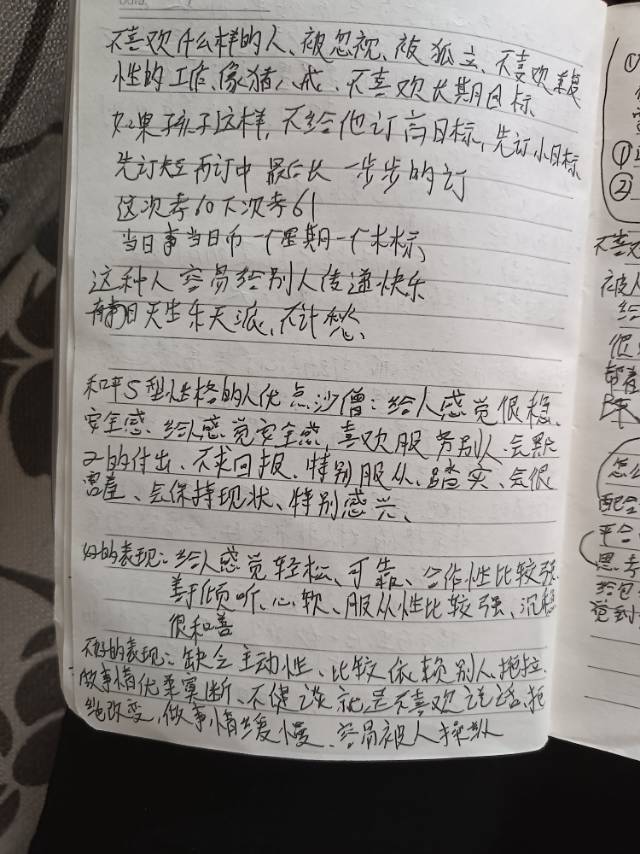 不喜欢什么样的人、被忽视、被孤立、不喜欢重复
性的工作、像猪八戒、不喜欢长期目标
如果孩子这样,不给他订高目标,先订小目标
先订短 再订中 最后长 一步步的订
这次考60下次考61
当日事当日币 一个星期一个木标、
这种人容易给别人传递快乐
天生乐天派、不计愁、
和平S型性格的人优点沙僧:给人感觉很稳、
安全感、给人感觉安全感,喜欢服务别人、会默
的付出、不求回报、特别服从、踏实、会很
会保持现状、特别感兴、
好的表现:给人感觉轻松、可靠、合作性比较强、
善于倾听、心软、服从性比较强、沉稳
很和善
不好的表现:缺乏主动性、比较依赖别人、拖拉、
做事情优柔寡断、不健谈就是不喜欢说话、拒
绝改变、做事情缓慢、容易被人操纵
①
①
②
不喜欢
被人
给
很
怎么
配合
平合
思考
给包
觉到